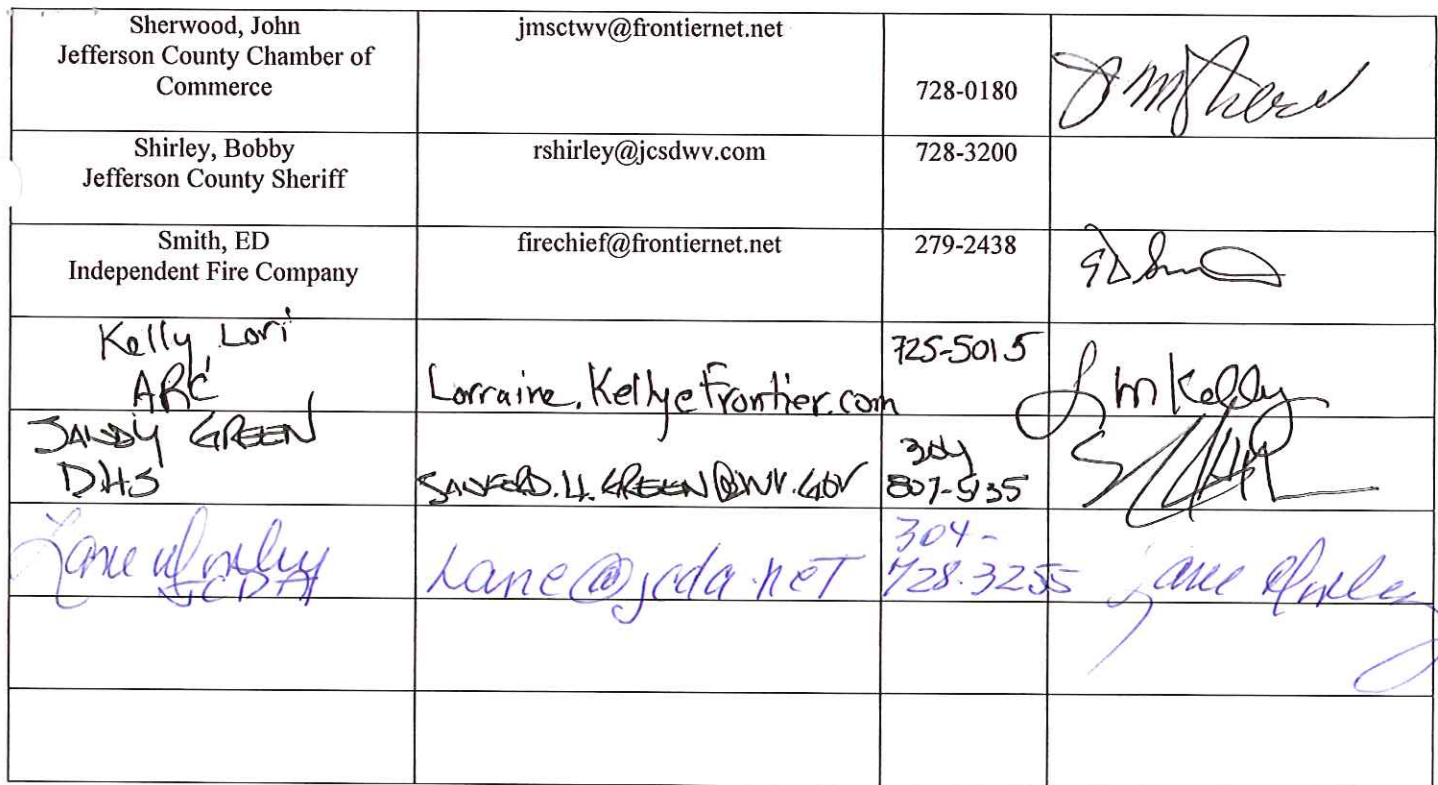 Sherwood, John
Jefferson County Chamber of
Commerce
jmsctwv@frontiernet.net
728-0180
Shirley, Bobby
Jefferson County Sheriff
rshirley@jcsdwv.com
728-3200
Smith, ED
Independent Fire Company
firechief@frontiernet.net
279-2438
Kelly Lori
ARC
Lorraine.Kelly@Frontier.com
725-5015
L M Kelly
SANDY GREEN
DHS
SANFORD.H.GREEN@WV.GOV
304
807-5135
Lane
JCDA
Lane@jcda.net
304-
728-3255